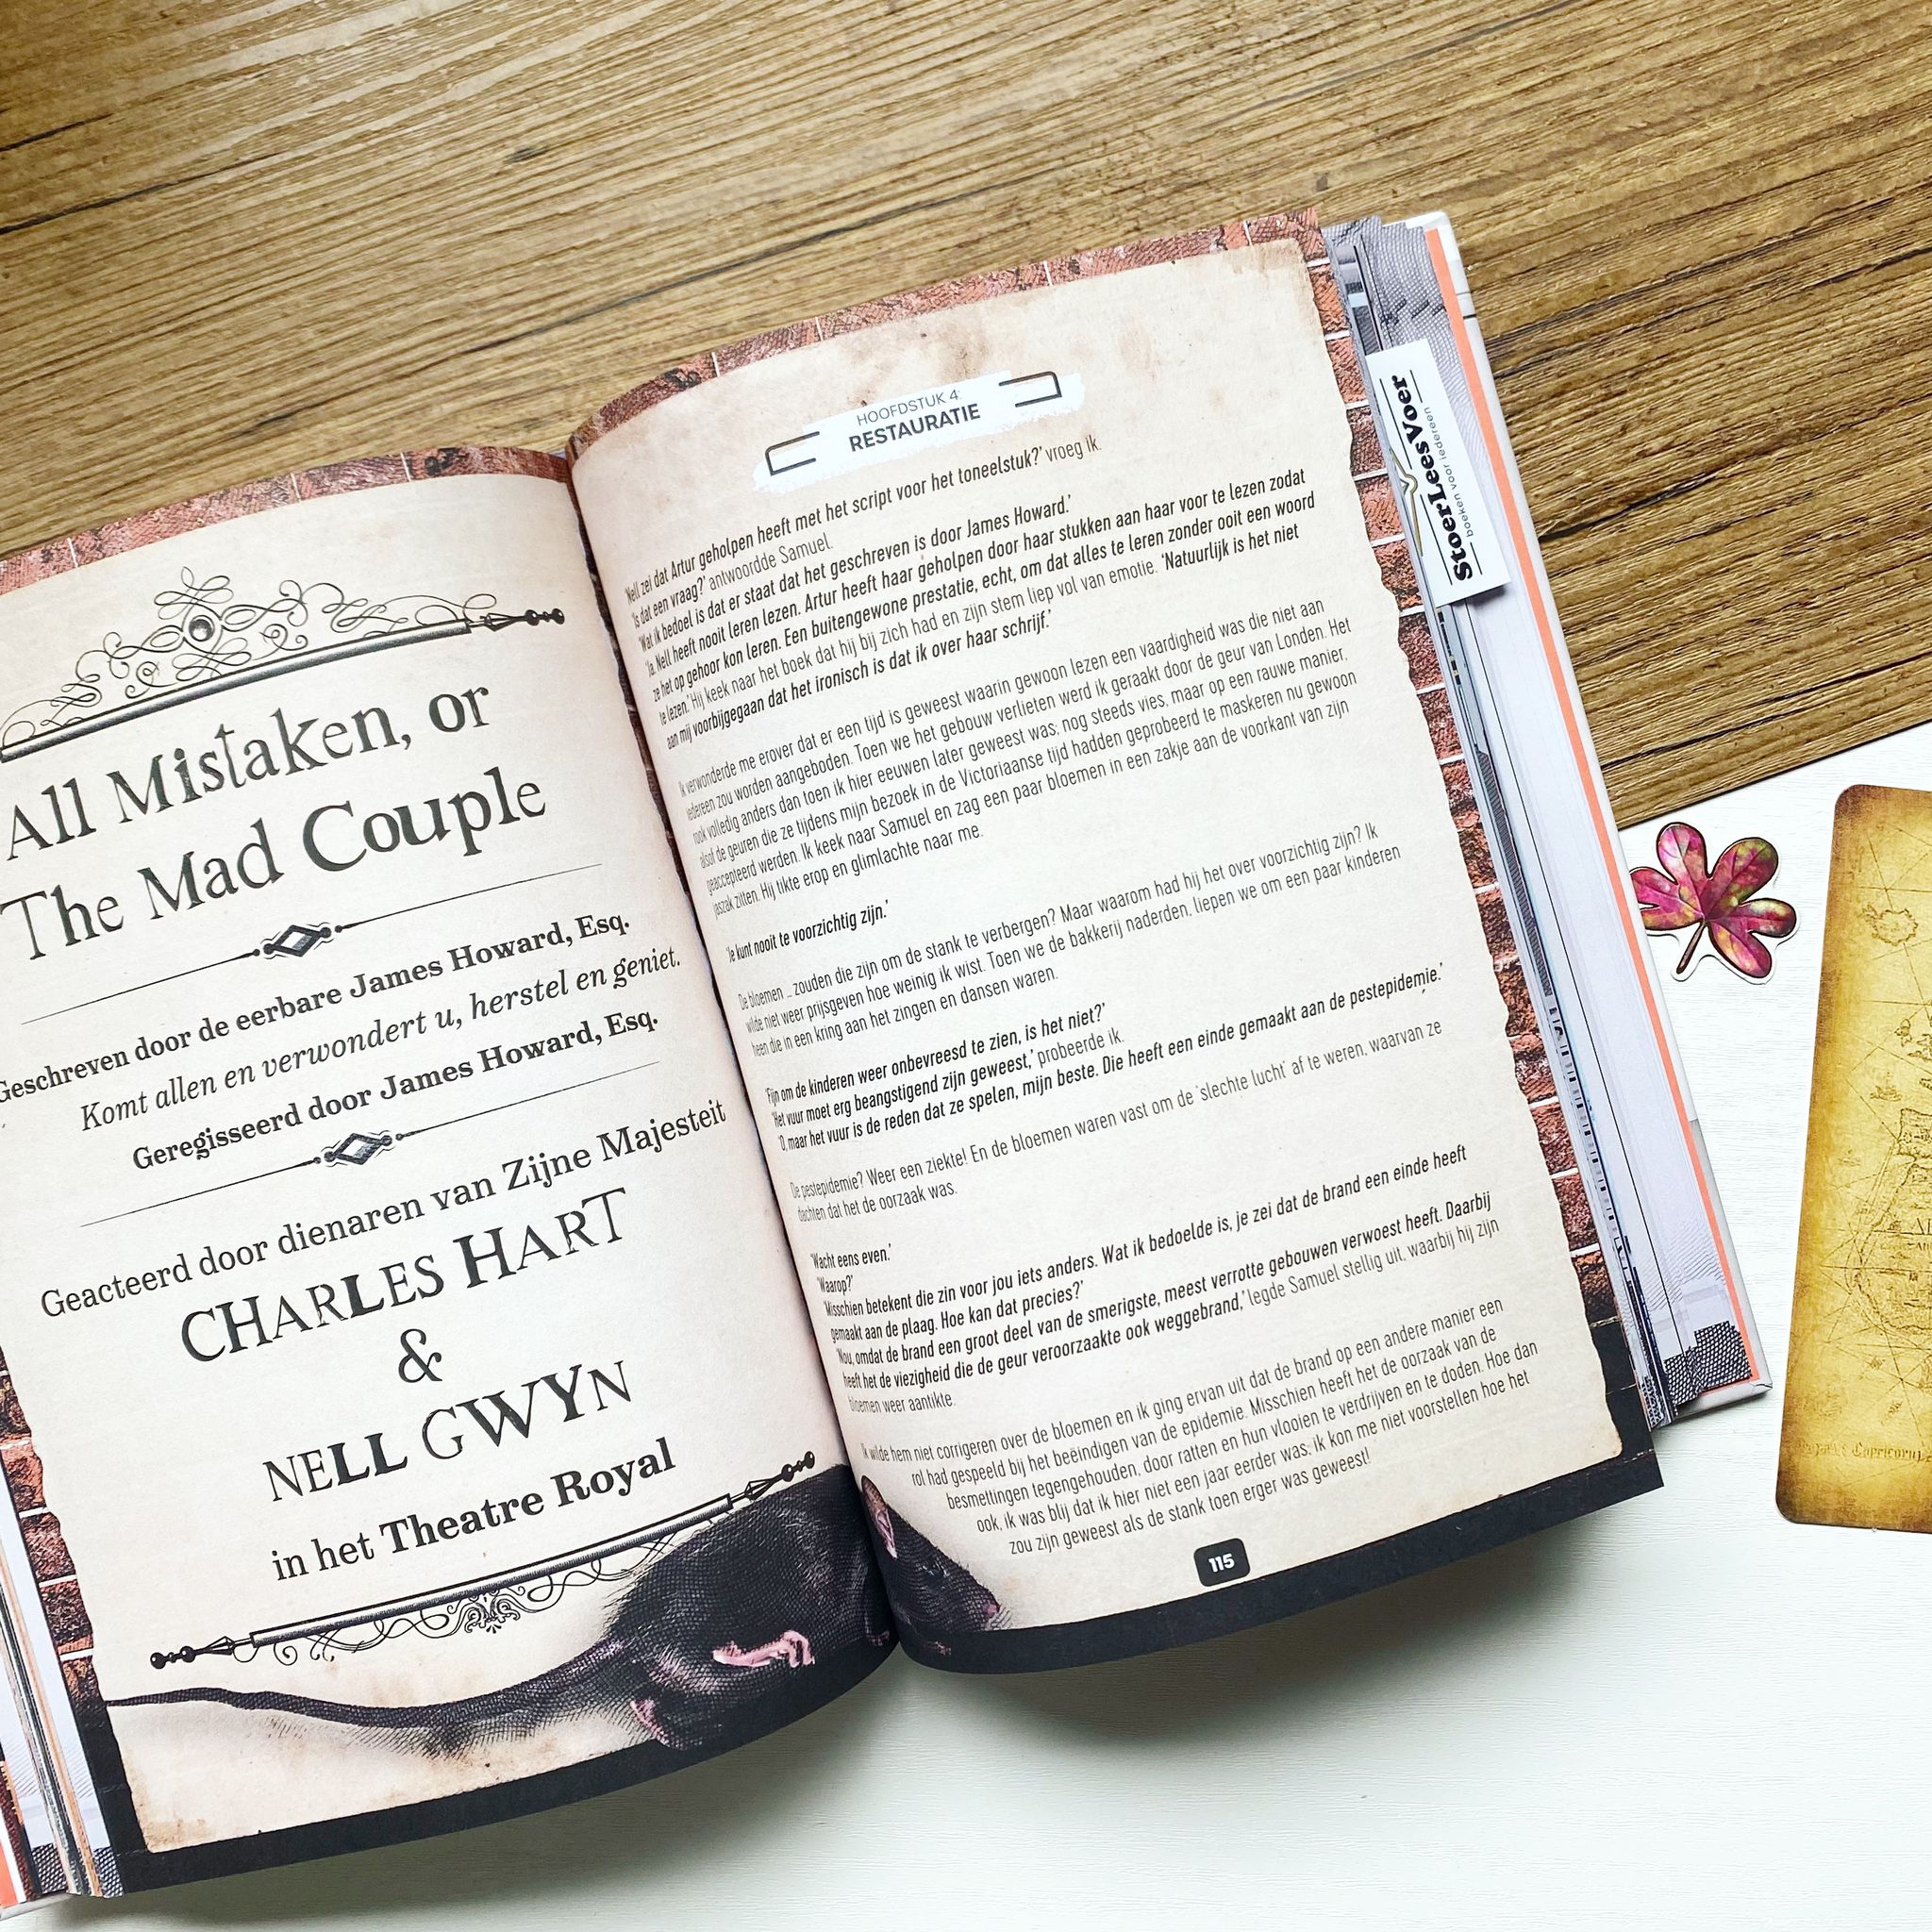 All Mistaken, or
The Mad Couple
Geschreven door de eerbare James Howard, Esq.
Komt allen en verwondert u, herstel en geniet.
Geregisseerd door James Howard, Esq.
Geacteerd door dienaren van Zijne Majesteit
CHARLES HART
&
NELL GWYN
in het Theatre Royal
HOOFDSTUK 4:
RESTAURATIE
'Nell zei dat Artur geholpen heeft met het script voor het toneelstuk?' vroeg ik.
'Is dat een vraag?' antwoordde Samuel.
'Wat ik bedoel is dat er staat dat het geschreven is door James Howard.'
'Ja. Nell heeft nooit leren lezen. Artur heeft haar geholpen door haar stukken aan haar voor te lezen zodat
ze het op gehoor kon leren. Een buitengewone prestatie, echt, om dat alles te leren zonder ooit een woord
te lezen.' Hij keek naar het boek dat hij bij zich had en zijn stem liep vol van emotie. 'Natuurlijk is het niet
aan mij voorbijgegaan dat het ironisch is dat ik over haar schrijf.'
Ik verwonderde me erover dat er een tijd is geweest waarin gewoon lezen een vaardigheid was die niet aan
iedereen zou worden aangeboden. Toen we het gebouw verlieten werd ik geraakt door de geur van Londen. Het
rook volledig anders dan toen ik hier eeuwen later geweest was; nog steeds vies, maar op een rauwe manier,
alsof de geuren die ze tijdens mijn bezoek in de Victoriaanse tijd hadden geprobeerd te maskeren nu gewoon
geaccepteerd werden. Ik keek naar Samuel en zag een paar bloemen in een zakje aan de voorkant van zijn
jaszak zitten. Hij tikte erop en glimlachte naar me.
'Je kunt nooit te voorzichtig zijn.'
De bloemen ... zouden die zijn om de stank te verbergen? Maar waarom had hij het over voorzichtig zijn? Ik
wilde niet weer prijsgeven hoe weinig ik wist. Toen we de bakkerij naderden, liepen we om een paar kinderen
heen die in een kring aan het zingen en dansen waren.
'Fijn om de kinderen weer onbevreesd te zien, is het niet?'
'Het vuur moet erg beangstigend zijn geweest,' probeerde ik.
'O, maar het vuur is de reden dat ze spelen, mijn beste. Die heeft een einde gemaakt aan de pestepidemie.'
De pestepidemie? Weer een ziekte! En de bloemen waren vast om de 'slechte lucht' af te weren, waarvan ze
dachten dat het de oorzaak was.
'Wacht eens even.'
'Waarop?'
'Misschien betekent die zin voor jou iets anders. Wat ik bedoelde is, je zei dat de brand een einde heeft
gemaakt aan de plaag. Hoe kan dat precies?'
'Nou, omdat de brand een groot deel van de smerigste, meest verrotte gebouwen verwoest heeft. Daarbij
heeft het de viezigheid die de geur veroorzaakte ook weggebrand,' legde Samuel stellig uit, waarbij hij zijn
bloemen weer aantikte.
Ik wilde hem niet corrigeren over de bloemen en ik ging ervan uit dat de brand op een andere manier een
rol had gespeeld bij het beëindigen van de epidemie. Misschien heeft het de oorzaak van de
besmettingen tegengehouden, door ratten en hun vlooien te verdrijven en te doden. Hoe dan
ook, ik was blij dat ik hier niet een jaar eerder was; ik kon me niet voorstellen hoe het
zou zijn geweest als de stank toen erger was geweest!
115
StoerLeesVoer
boeken voor iedereen